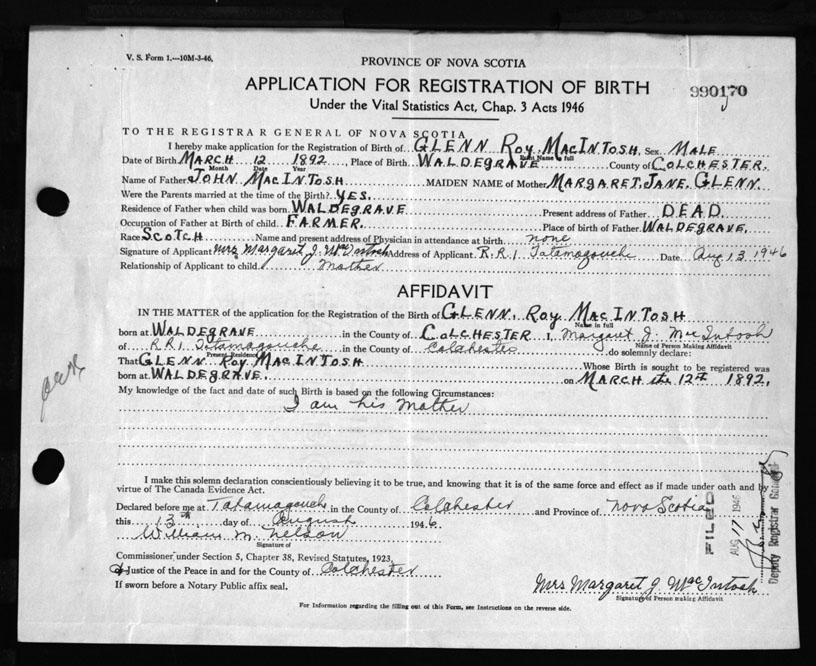 V. S. Form 1.—10M-3-46.
PROVINCE OF NOVA SCOTIA
APPLICATION FOR REGISTRATION OF BIRTH
990170
Under the Vital Statistics Act, Chap. 3 Acts 1946
TO THE REGISTRAR GENERAL OF NOVA SCOTIA
I hereby make application for the Registration of Birth of GLENN ROY MACINTOSH, Sex MALE
Name in full
Date of Birth MARCH 12 1892, Place of Birth WALDEGRAVE County of COLCHESTER.
Month Date Year
Name of Father JOHN MACINTOSH MAIDEN NAME of Mother MARGARET JANE GLENN.
Were the Parents married at the time of the Birth? YES.
Residence of Father when child was born WALDEGRAVE Present address of Father DEAD.
Occupation of Father at Birth of child FARMER. Place of birth of Father WALDEGRAVE.
Race SCOTCH Name and present address of Physician in attendance at birth none
Signature of Applicant Mrs Margaret J. McIntosh Address of Applicant R.R.1 Tatamagouche Date Aug 13 1946
Relationship of Applicant to child Mother
AFFIDAVIT
IN THE MATTER of the application for the Registration of the Birth of GLENN ROY MACINTOSH
Name in full
born at WALDEGRAVE in the County of COLCHESTER I, Margaret J. MacIntosh
Name of Person Making Affidavit
of R.R.1 Tatamagouche in the County of Colchester do solemnly declare:
Present Residence
That GLENN ROY MACINTOSH Whose Birth is sought to be registered was
born at WALDEGRAVE. on MARCH the 12th 1892.
My knowledge of the fact and date of such Birth is based on the following Circumstances:
I am his Mother
I make this solemn declaration conscientiously believing it to be true, and knowing that it is of the same force and effect as if made under oath and by
virtue of The Canada Evidence Act.
Declared before me at Tatamagouche in the County of Colchester and Province of Nova Scotia
this 13th day of August 1946.
William M. Nelson
Signature of
Commissioner under Section 5, Chapter 38, Revised Statutes, 1923,
Justice of the Peace in and for the County of Colchester
If sworn before a Notary Public affix seal.
Mrs Margaret J. MacIntosh
Signature of Person making Affidavit
For Information regarding the filling out of this Form, see Instructions on the reverse side.
FILED
AUG 17 1946
Deputy Registrar General